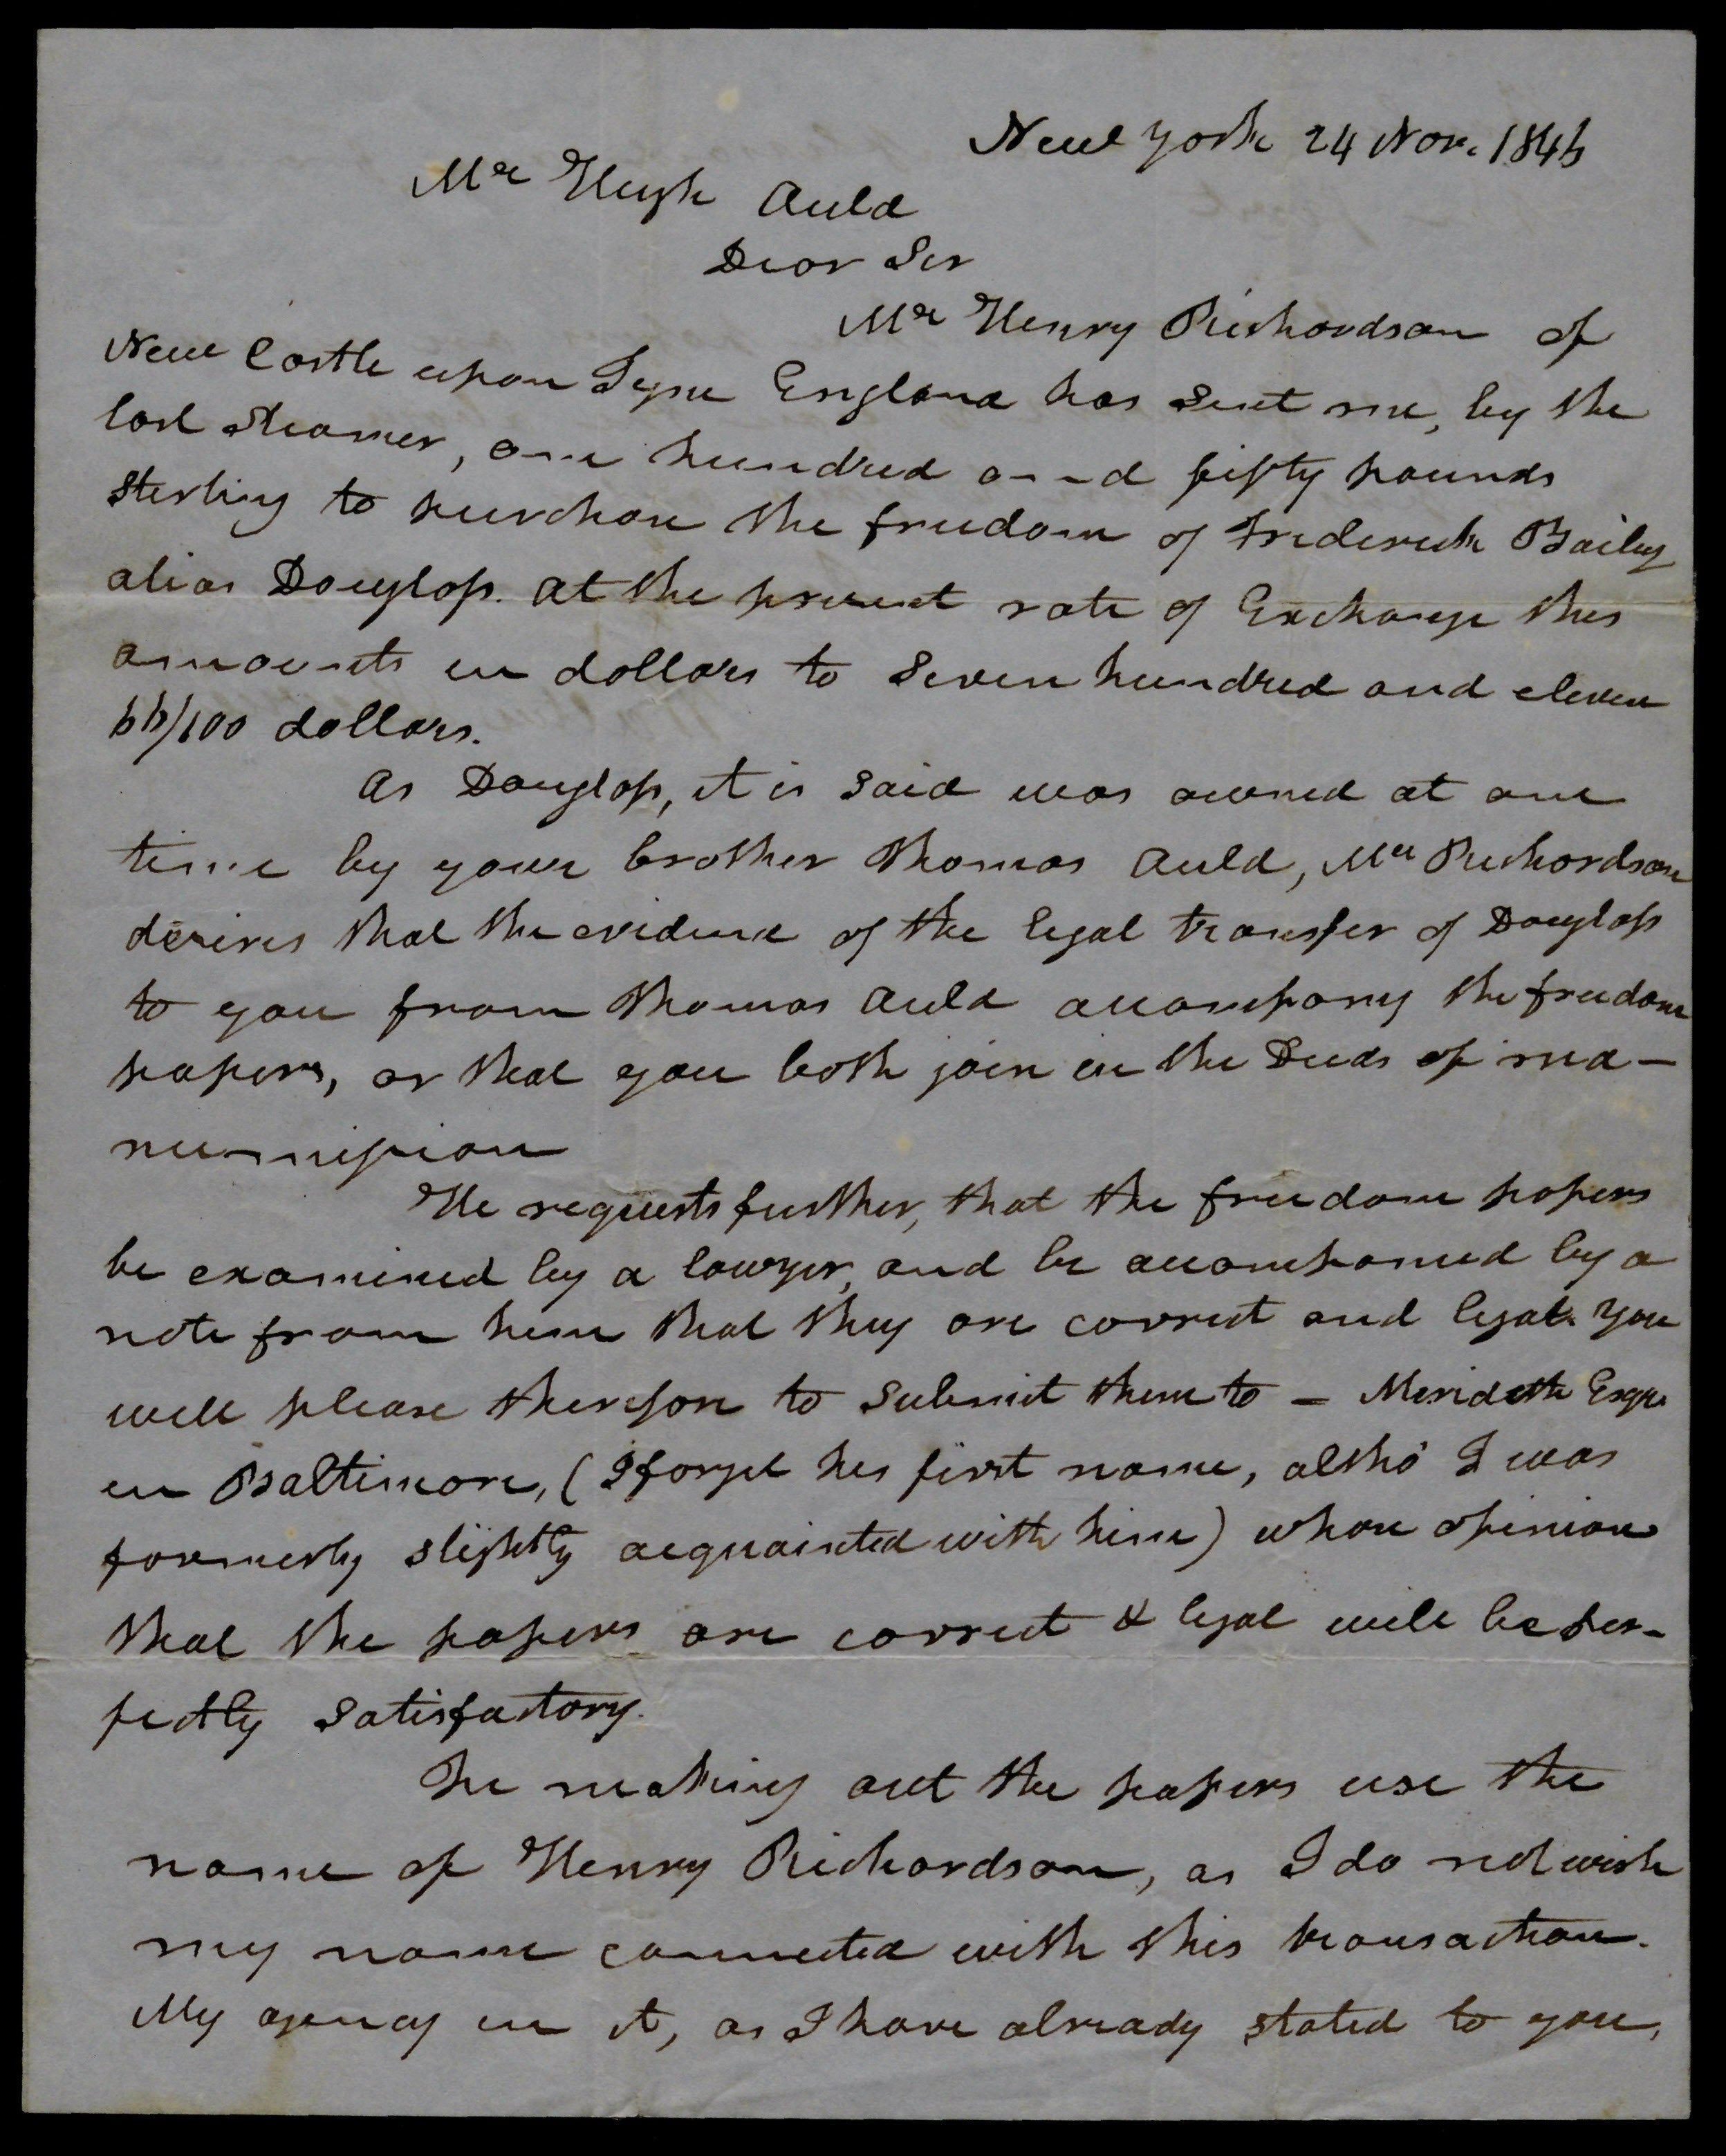 New York 24 Nov. 1846
Mr Hugh Auld
Dear Sir
Mr Henry Richardson of
New Castle upon Tyne England has sent me, by the
last steamer, one hundred and fifty pounds
sterling to purchase the freedom of Frederick Bailey
alias Douglass. At the present rate of Exchange this
amounts in dollars to seven hundred and eleven
66/100 dollars.
As Douglass, it is said was owned at one
time by your brother Thomas Auld, Mr Richardson
desires that the evidence of the legal transfer of Douglass
to you from Thomas Auld accompany the freedom
papers, or that you both join in the Deeds of ma-
numission
He requests further, that the freedom papers
be examined by a lawyer, and be accompanied by a
note from him that they are correct and legal. You
will please therefore to submit them to – Meridith Esqr.
in Baltimore, (I forget his first name, altho' I was
formerly slightly acquainted with him) whose opinion
that the papers are correct & legal will be per-
fectly satisfactory.
In making out the papers use the
name of Henry Richardson, as I do not wish
my name connected with this transaction.
My agency in it, as I have already stated to you,